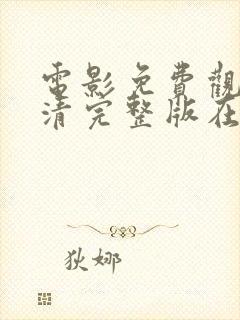 電影免費觀
清完整版在
狄娜